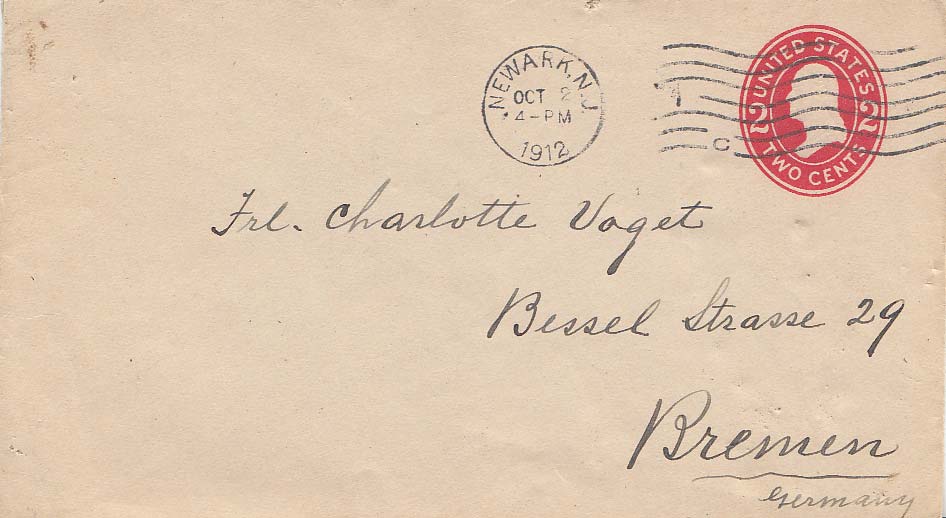 NEWARK, N.J.
OCT 2
4-PM
1912
C
UNITED STATES
2 2
TWO CENTS
Frl. Charlotte Voget
Bessel Strasse 29
Bremen
Germany